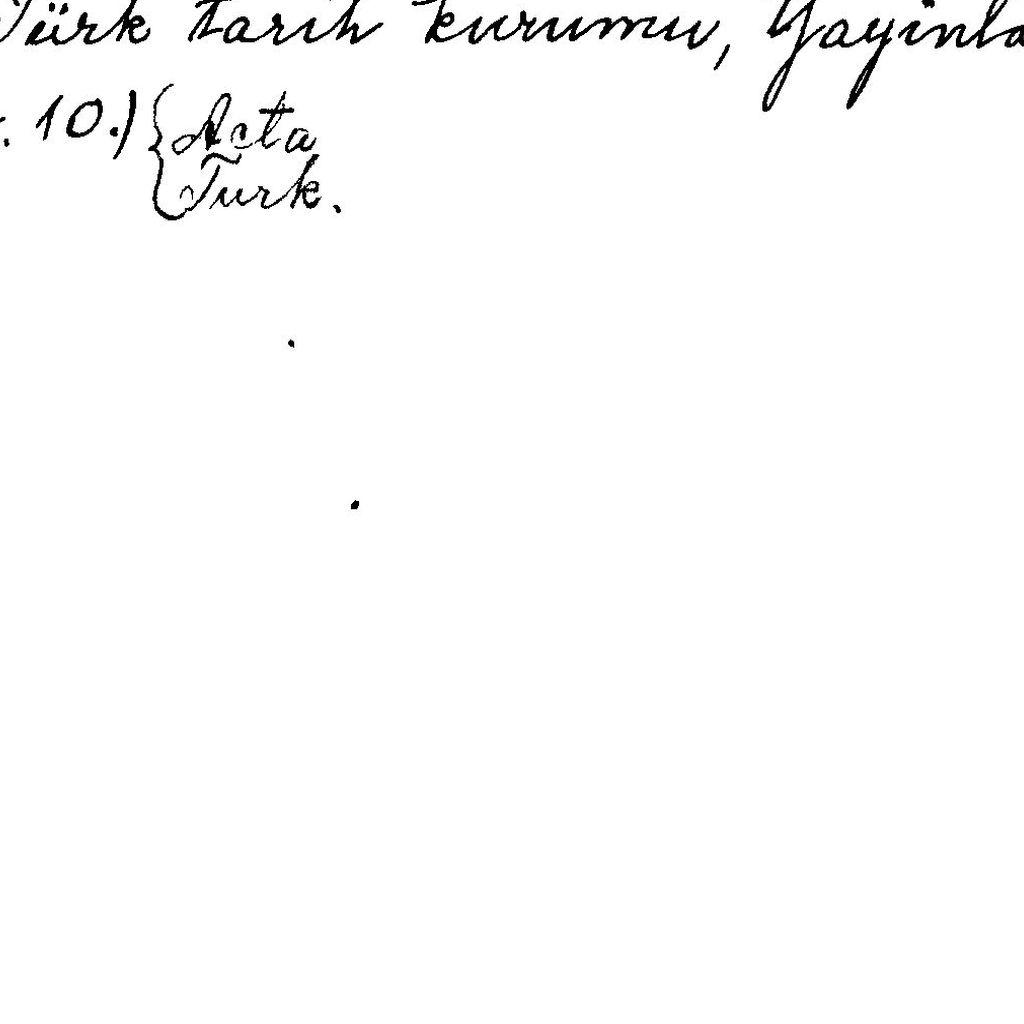 Türk tarih kurumu, Yayinla
. 10.) { Acta
Turk.